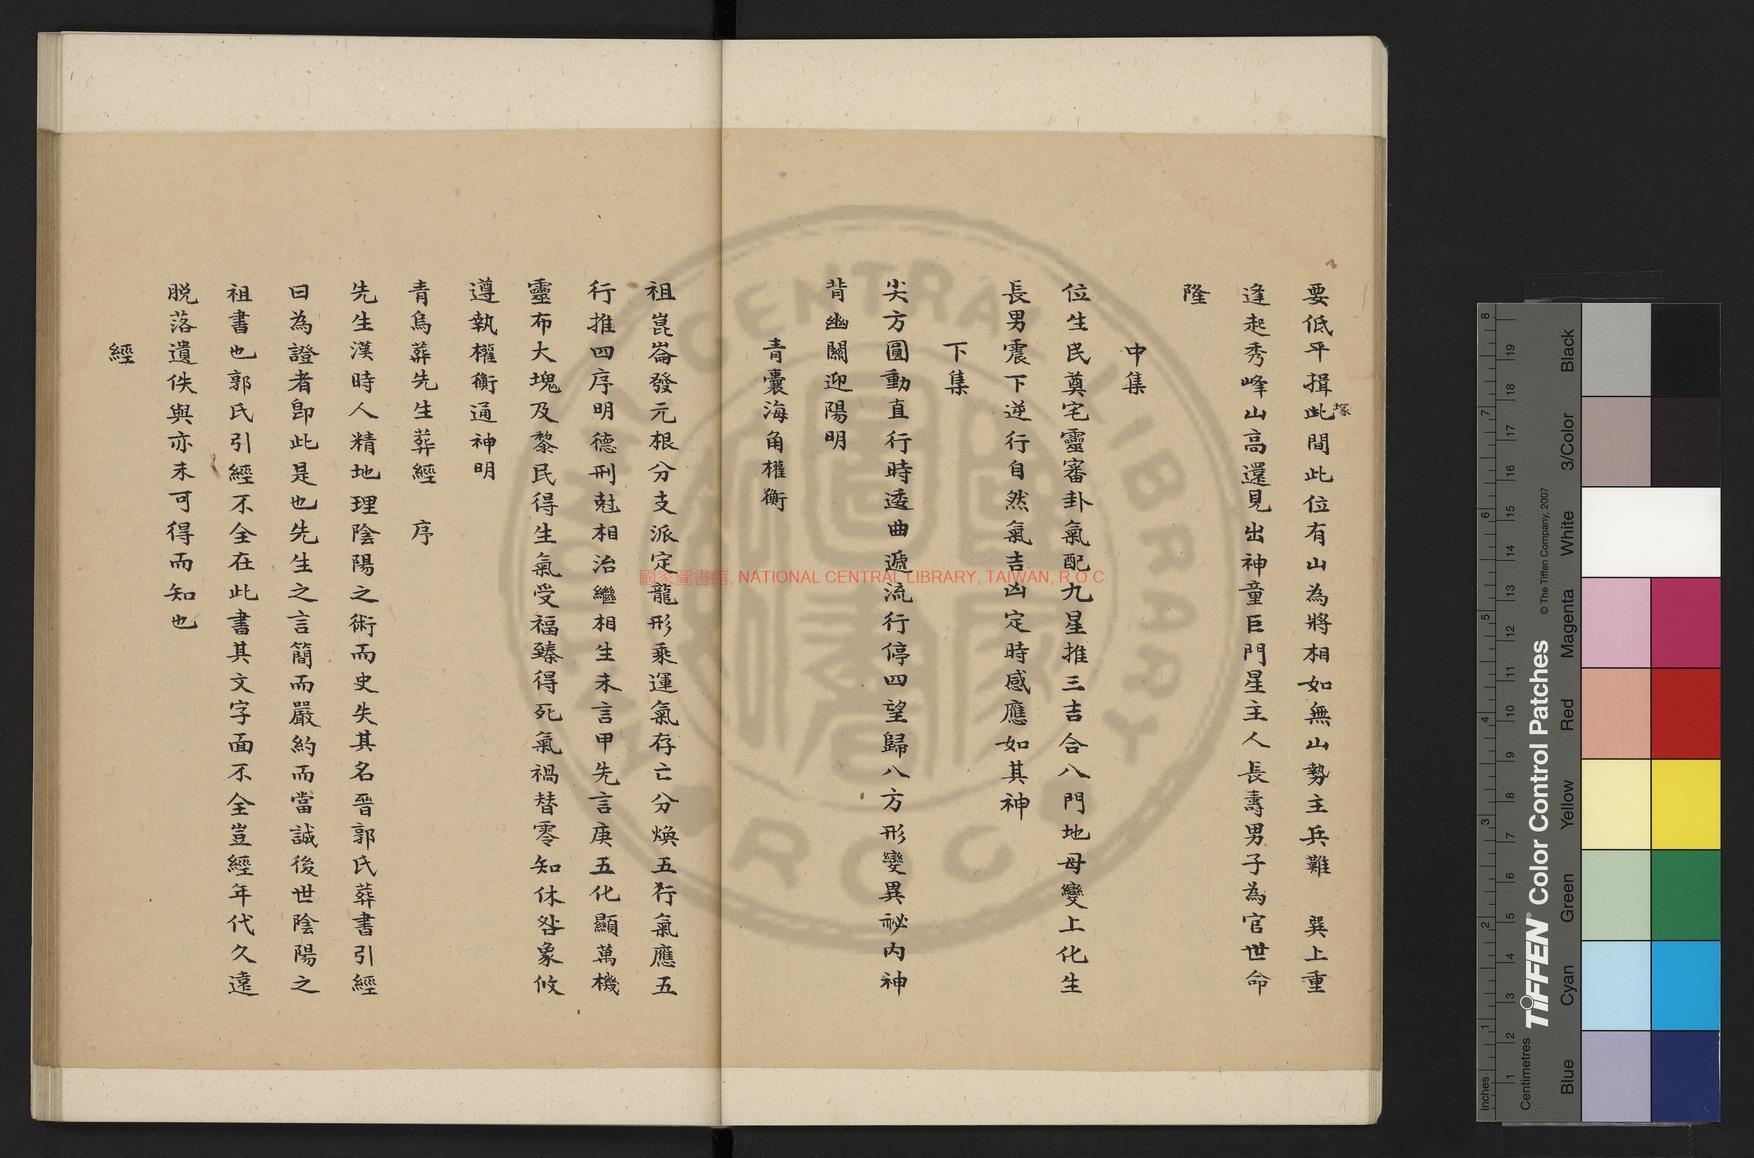 要低平揖此塚間此位有山為將相如無山勢主兵難　巽上重
逢起秀峰山高還見出神童巨門星主人長壽男子為官世命
隆
中集
位生民奠宅靈審卦氣配九星推三吉合八門地母變上化生
長男震下逆行自然氣吉凶定時感應如其神
下集
尖方圓動直行時逶曲遞流行停四望歸八方形變異祕內神
背幽關迎陽明
青囊海角權衡
祖崑崙發元根分支派定龍形乘運氣存亡分煥五行氣應五
行推四序明德刑尅相治繼相生未言甲先言庚五化顯萬機
靈布大塊及黎民得生氣受福臻得死氣禍替零知休咎象攸
遵執權衡通神明
青烏葬先生葬經　序
先生漢時人精地理陰陽之術而史失其名晉郭氏葬書引經
曰為證者卽此是也先生之言簡而嚴約而當誠後世陰陽之
祖書也郭氏引經不全在此書其文字面不全豈經年代久遠
脫落遺佚與亦未可得而知也
經
國家圖書館, NATIONAL CENTRAL LIBRARY, TAIWAN, R.O.C.
NATIONAL CENTRAL LIBRARY
ROC
Inches 1 2 3 4 5 6 7 8
Centimetres 1 2 3 4 5 6 7 8 9 10 11 12 13 14 15 16 17 18 19
TIFFEN® Color Control Patches
© The Tiffen Company, 2007
Blue Cyan Green Yellow Red Magenta White 3/Color Black